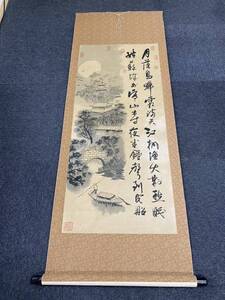 月落烏啼霜滿天江楓漁火對愁眠
姑蘇城外寒山寺夜半鐘聲到客船